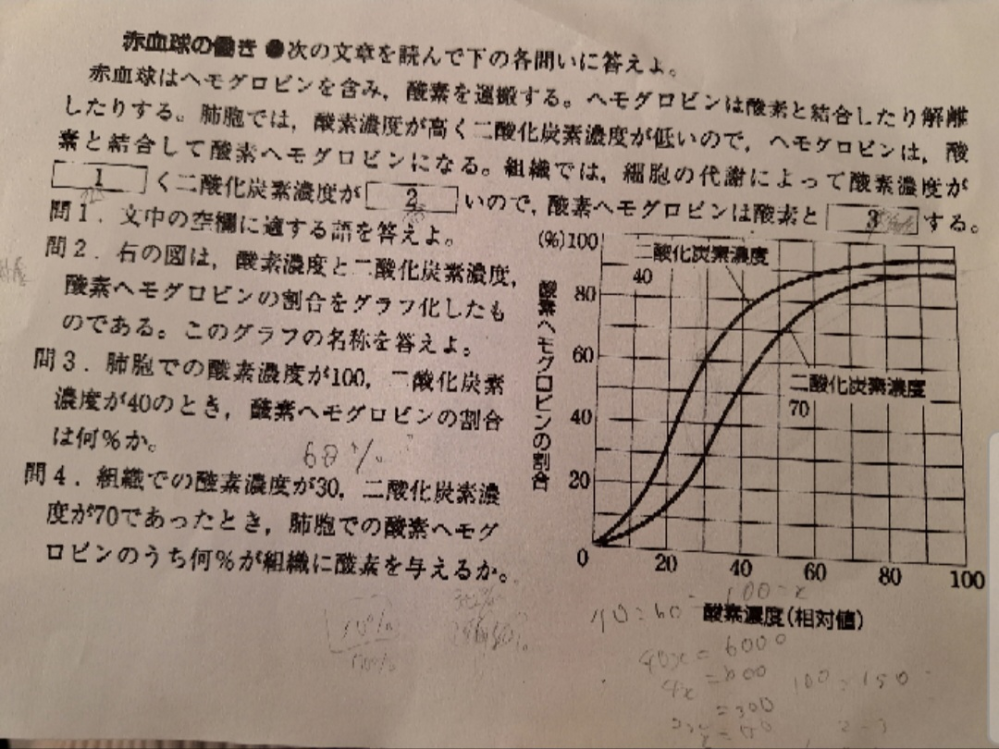 赤血球の働き ●次の文章を読んで下の各問いに答えよ。
赤血球はヘモグロビンを含み，酸素を運搬する。ヘモグロビンは酸素と結合したり解離
したりする。肺胞では，酸素濃度が高く二酸化炭素濃度が低いので，ヘモグロビンは，酸
素と結合して酸素ヘモグロビンになる。組織では，細胞の代謝によって酸素濃度が
1 く二酸化炭素濃度が 2 いので，酸素ヘモグロビンは酸素と 3 する。
問1．文中の空欄に適する語を答えよ。
問2．右の図は，酸素濃度と二酸化炭素濃度，
酸素ヘモグロビンの割合をグラフ化したも
のである。このグラフの名称を答えよ。
問3．肺胞での酸素濃度が100，二酸化炭素
濃度が40のとき，酸素ヘモグロビンの割合
は何％か。
60%
問4．組織での酸素濃度が30，二酸化炭素濃
度が70であったとき，肺胞での酸素ヘモグ
ロビンのうち何％が組織に酸素を与えるか。
(%)100
80
60
40
20
0
酸素ヘモグロビンの割合
二酸化炭素濃度
40
二酸化炭素濃度
70
20 40 60 80 100
酸素濃度(相対値)
40x = 6000
4x = 600
= 300